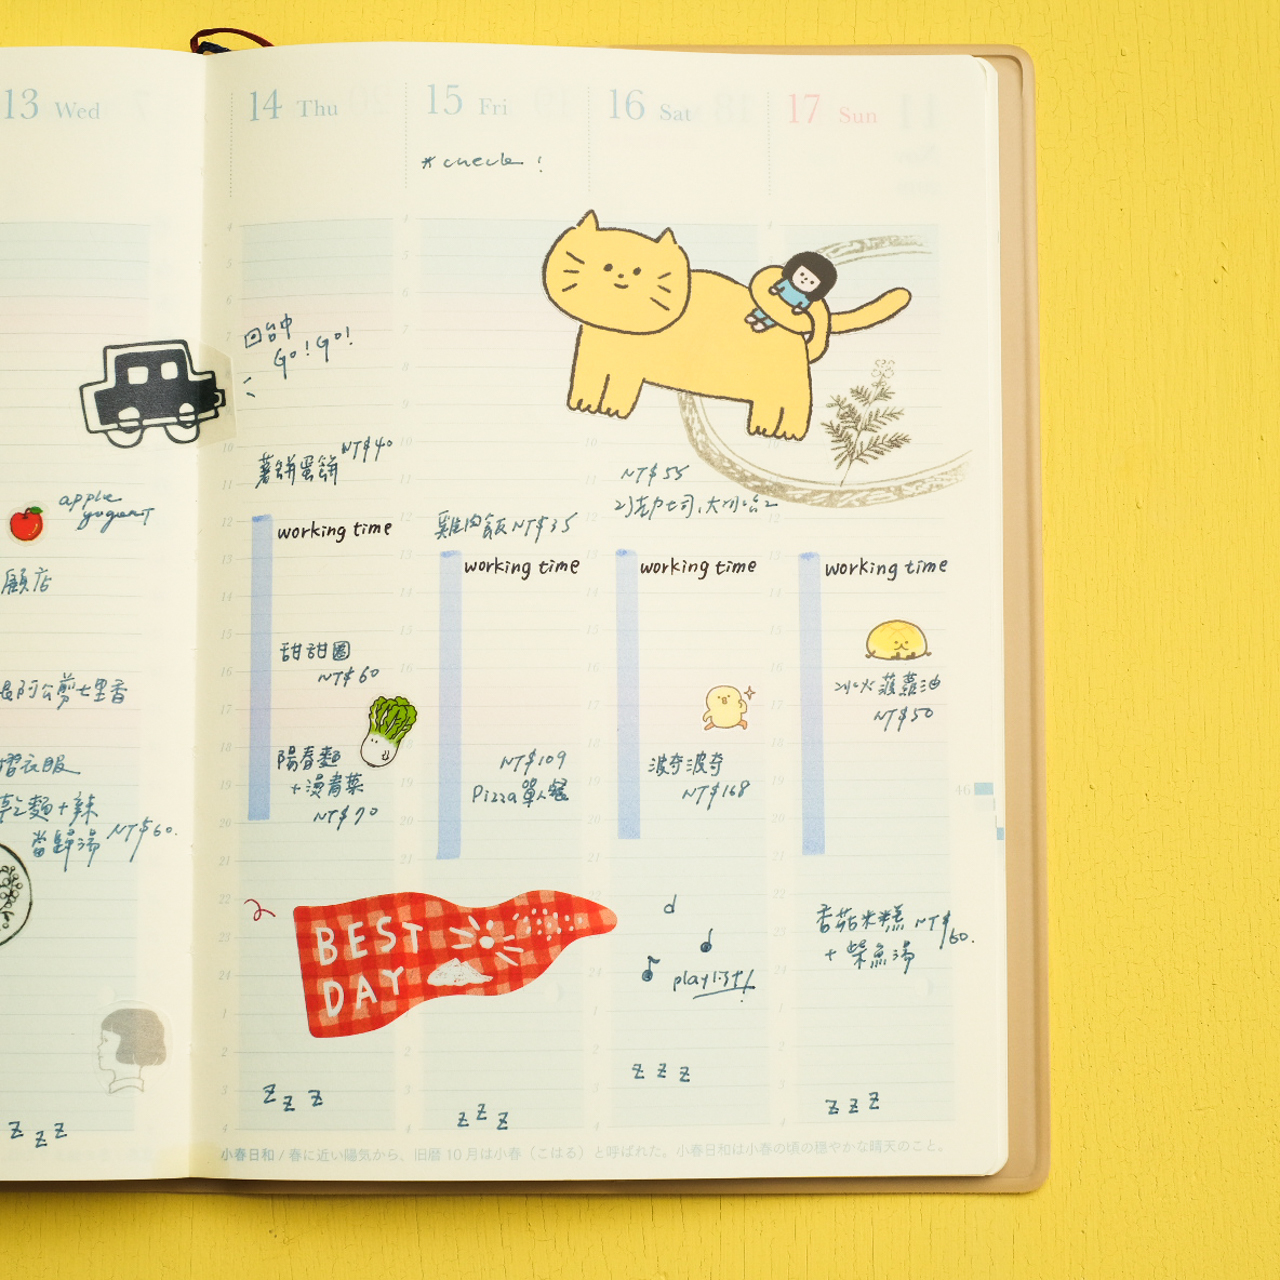 13 Wed
apple
yogurt
顧店
阿公剪七里香
摺衣服
乾麵+辣
當歸湯 NT$60.
z z z
14 Thu
回台中
Go! Go!
薯餅蛋餅 NT$40
working time
甜甜圈
NT$60
陽春麵
+燙青菜
NT$70
BEST
DAY
z z z
15 Fri
*check!
雞肉飯 NT$35
working time
NT$109
Pizza 單人餐
z z z
16 Sat
NT$55
working time
波奇波奇
NT$168
playlist!
z z z
17 Sun
working time
冰火菠蘿油
NT$50
香菇米糕 NT$60.
+柴魚湯
z z z
46
小春日和 / 春に近い陽気から、旧暦10月は小春（こはる）と呼ばれた。小春日和は小春の頃の穏やかな晴天のこと。